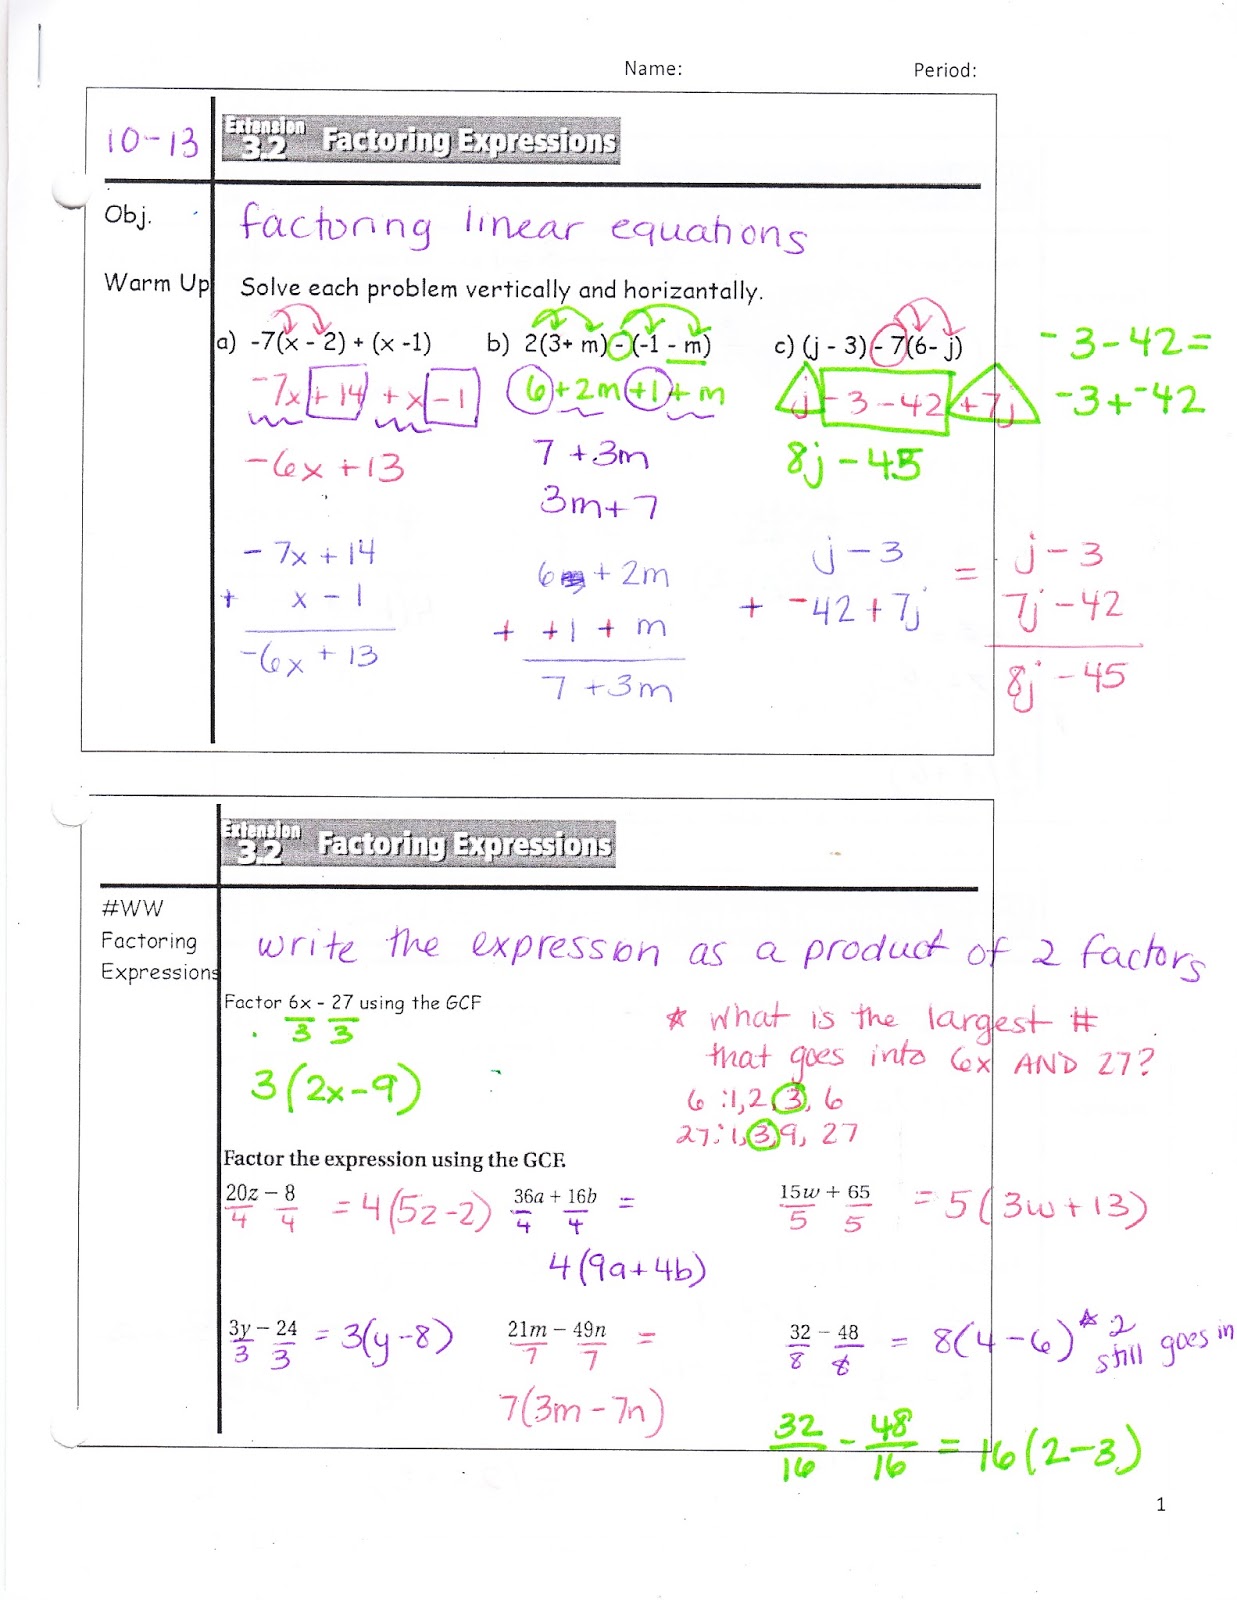 Name: Period:
10-13
Extension 3.2 Factoring Expressions
Obj. factoring linear equations
Warm Up Solve each problem vertically and horizantally.
a) -7(x - 2) + (x -1) b) 2(3+ m) - (-1 - m) c) (j - 3) - 7(6- j) -3-42=
-7x +14 +x -1 6+2m+1+m j -3-42 +7j -3+-42
-6x +13 7 +3m 8j -45
3m+7
-7x +14 6 + 2m j-3 = j-3
+ x -1 + +1 + m + -42 +7j 7j -42
-6x +13 7 +3m 8j -45
Extension 3.2 Factoring Expressions
#WW
Factoring
Expressions
write the expression as a product of 2 factors
Factor 6x - 27 using the GCF
3 3
3(2x-9)
* What is the largest #
that goes into 6x AND 27?
6 :1,2,3, 6
27:1,3,9, 27
Factor the expression using the GCF.
20z − 8 = 4(5z-2) 36a + 16b = 15w + 65 = 5(3w+13)
4 4 4 4 5 5
4(9a+4b)
3y − 24 = 3(y-8) 21m − 49n = 32 − 48 = 8(4-6) * 2
3 3 7 7 8 8 still goes in
7(3m-7n)
32 - 48 = 16(2-3)
16 16
1